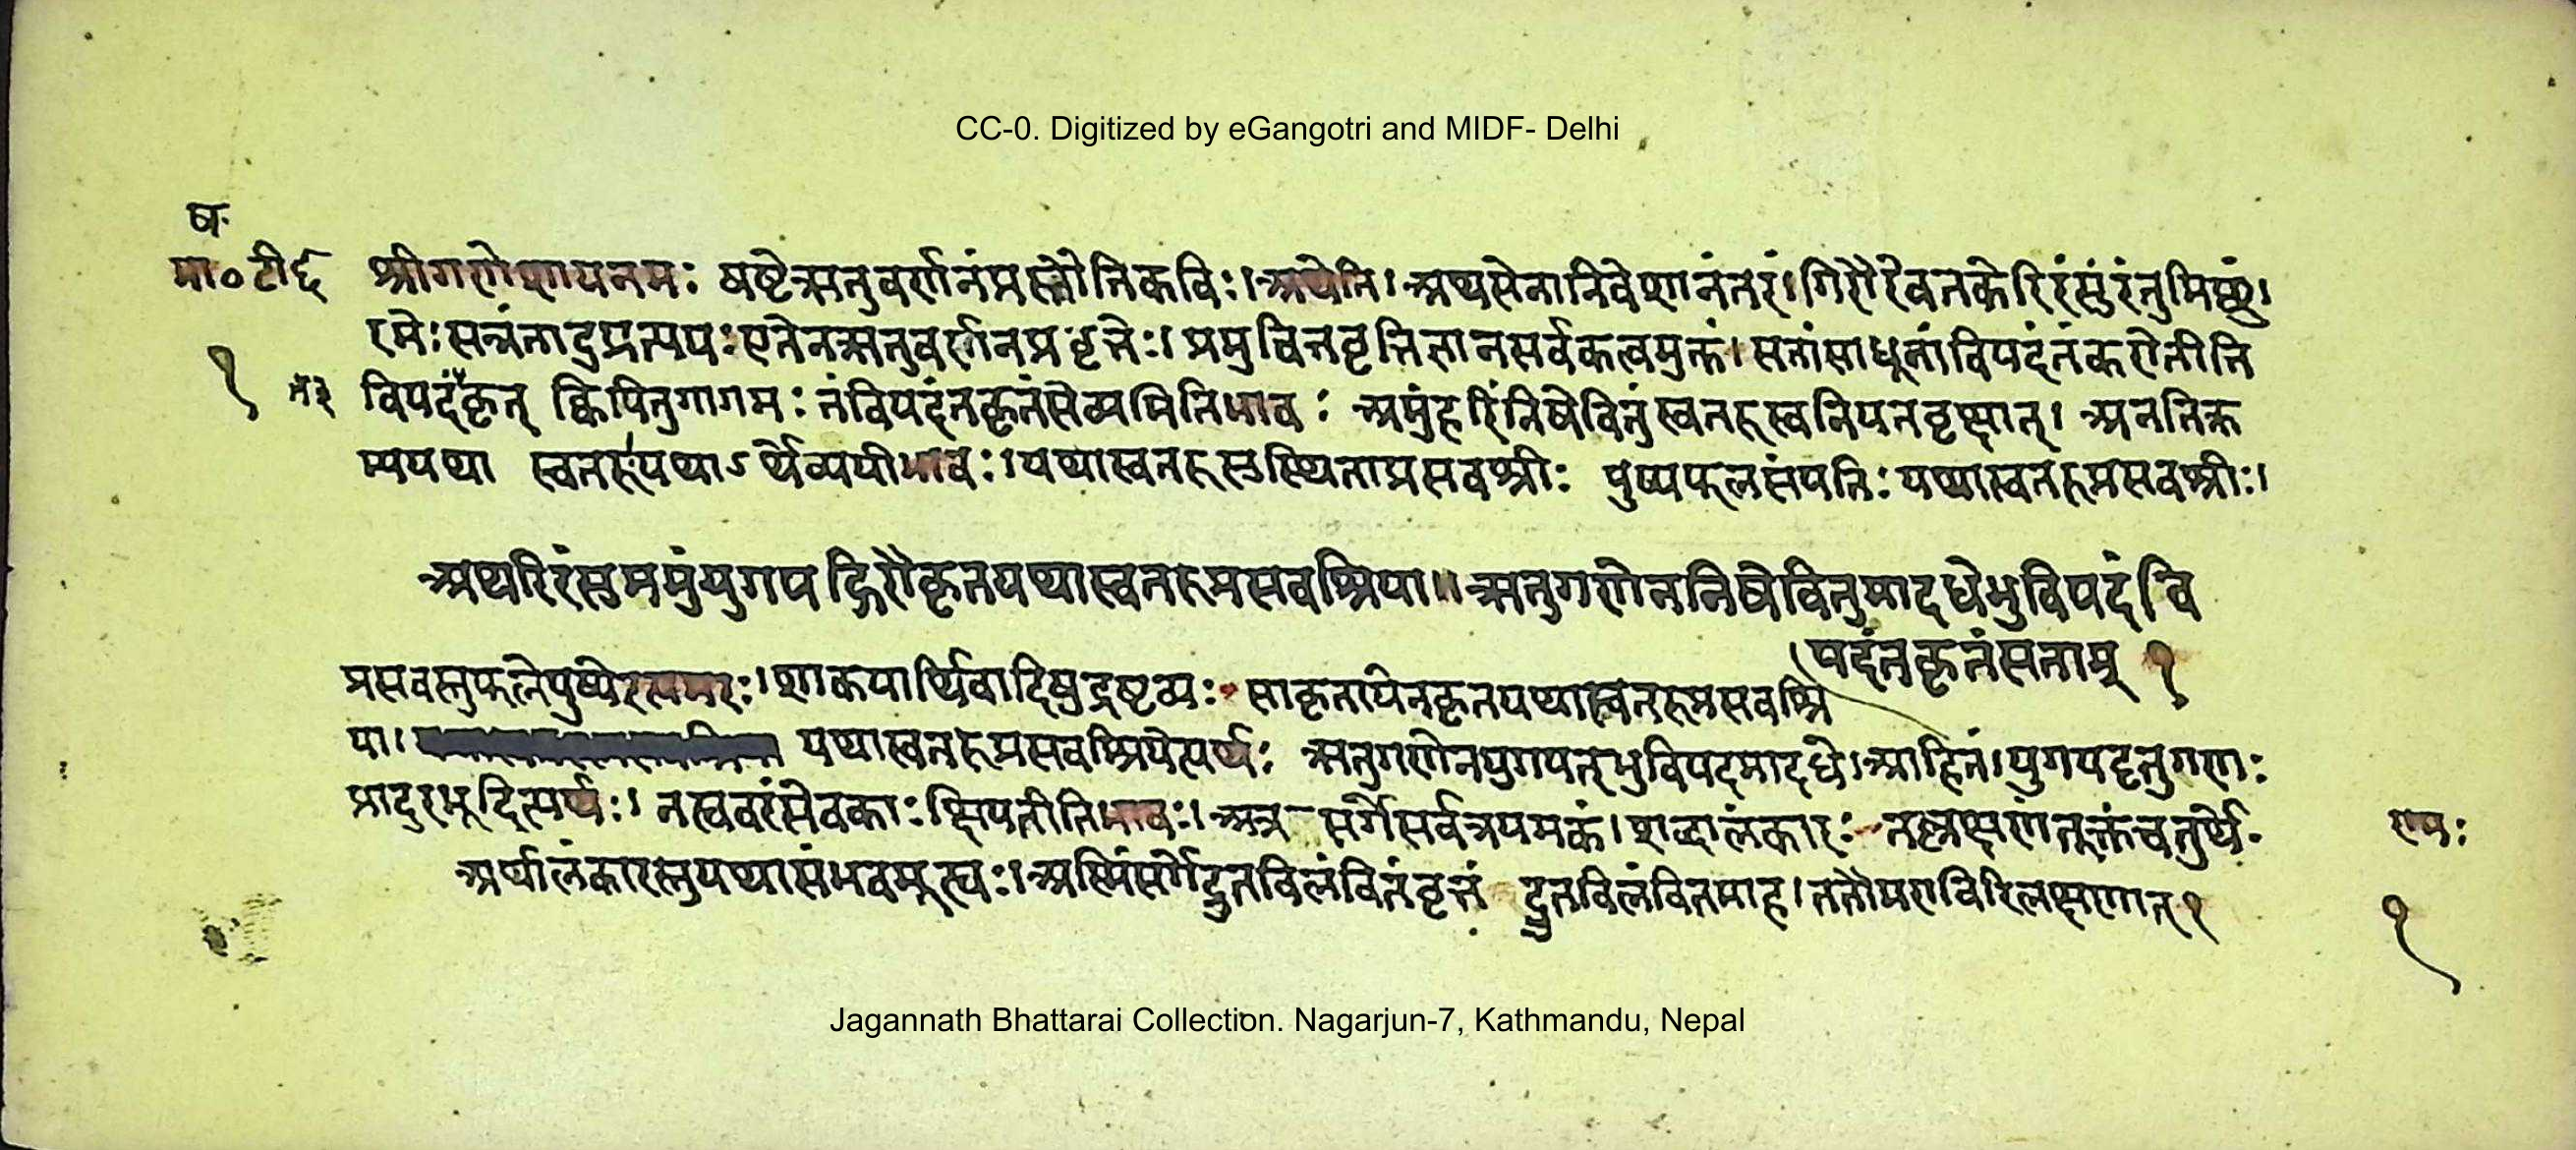 CC-0. Digitized by eGangotri and MIDF- Delhi
ष.
मा० टी६
श्रीगणेशायनमः षष्टेऋतुवर्णनंप्रस्तौतिकविः। अथेति। अथसेनानिवेशानंतरं। गिरौरैवतकेरिरंसुंरंतुमिछुं।
रमेः सन्नंतादुप्रत्ययः एतेनऋतुवर्णनप्रवृत्तेः। सतांसाधूनांविपदंनकरोतीति
१
विपदंकृत् क्विपितुगागमः तंविपदंनकृतंसेव्यमितिभावः अमुंहरिंनिषेवितुंस्वतरुस्वनियतवृक्षात्। अनतिक्र
म्ययथा स्वतरुयथाऽर्थेव्ययीभावः। यथास्वतरुसुस्थिताप्रसवश्रीः पुष्पफलसंपत्तिः यथास्वतरुप्रसवश्रीः।
अथरिरंसुममुंयुगपद्गिरौकृतयथास्वतरुप्रसवश्रिया॥ ऋतुगणेननिषेवितुमादधेभुविपदंवि
पदंतकृतंसताम् १
प्रसवस्तुफलेपुष्पे शाकपार्थिवादिषुद्रष्टव्यः साकृतायेनकृतयथास्वतरुप्रसवश्रि
या। यथास्वतरुप्रसवश्रियेत्यर्थः ऋतुगणेनयुगपत्भुविपदमादधे। आहितं। युगपदृतुगणः
प्रादुरभूदित्यर्थः। नस्ववरंसेवकाः क्षिपतीतिभावः। अत्र सर्गेसर्वत्रयमकं। शब्दालंकारः तल्लक्षणंतूक्तंचतुर्थे.
अर्थालंकारस्तुयथासंभवमूस्यः। अस्मिंसर्गेद्रुतविलंवितंवृत्तं द्रुतविलंवितमाह। लक्षणात् १
१
Jagannath Bhattarai Collection. Nagarjun-7, Kathmandu, Nepal